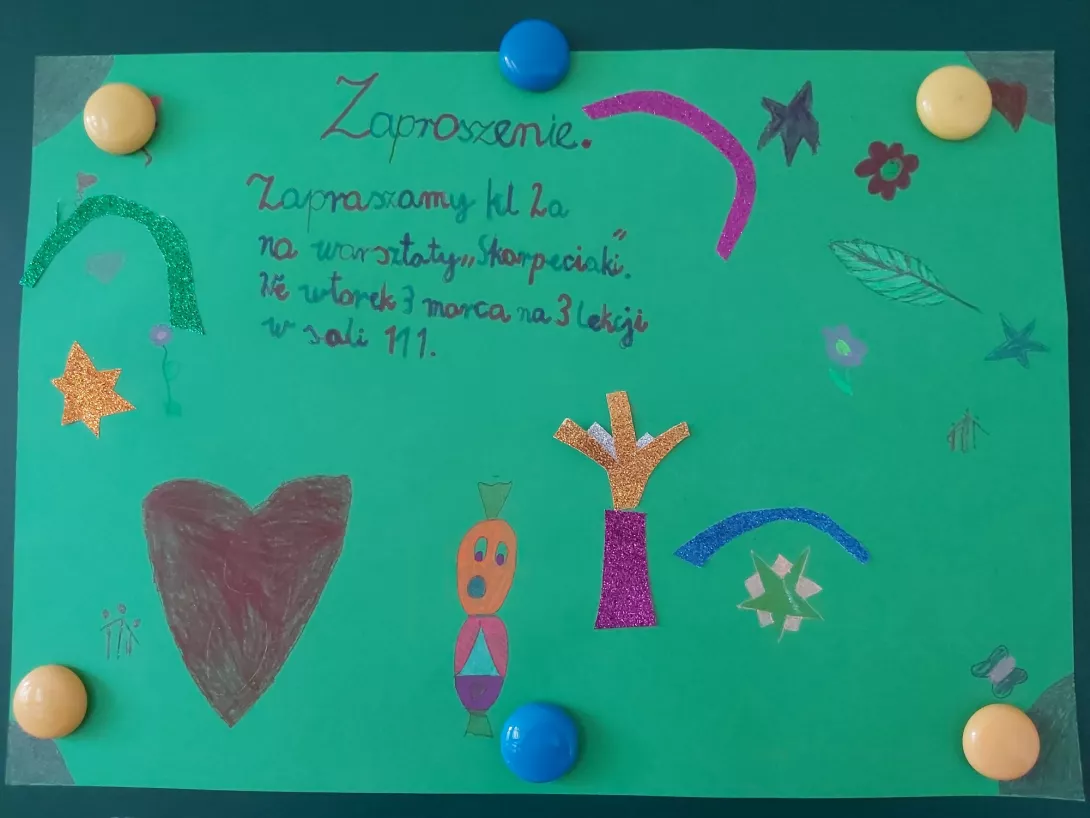 Zaproszenie.
Zapraszamy kl 2a
na warsztaty „Skarpeciaki”.
We wtorek 3 marca na 3 lekcji
w sali 111.